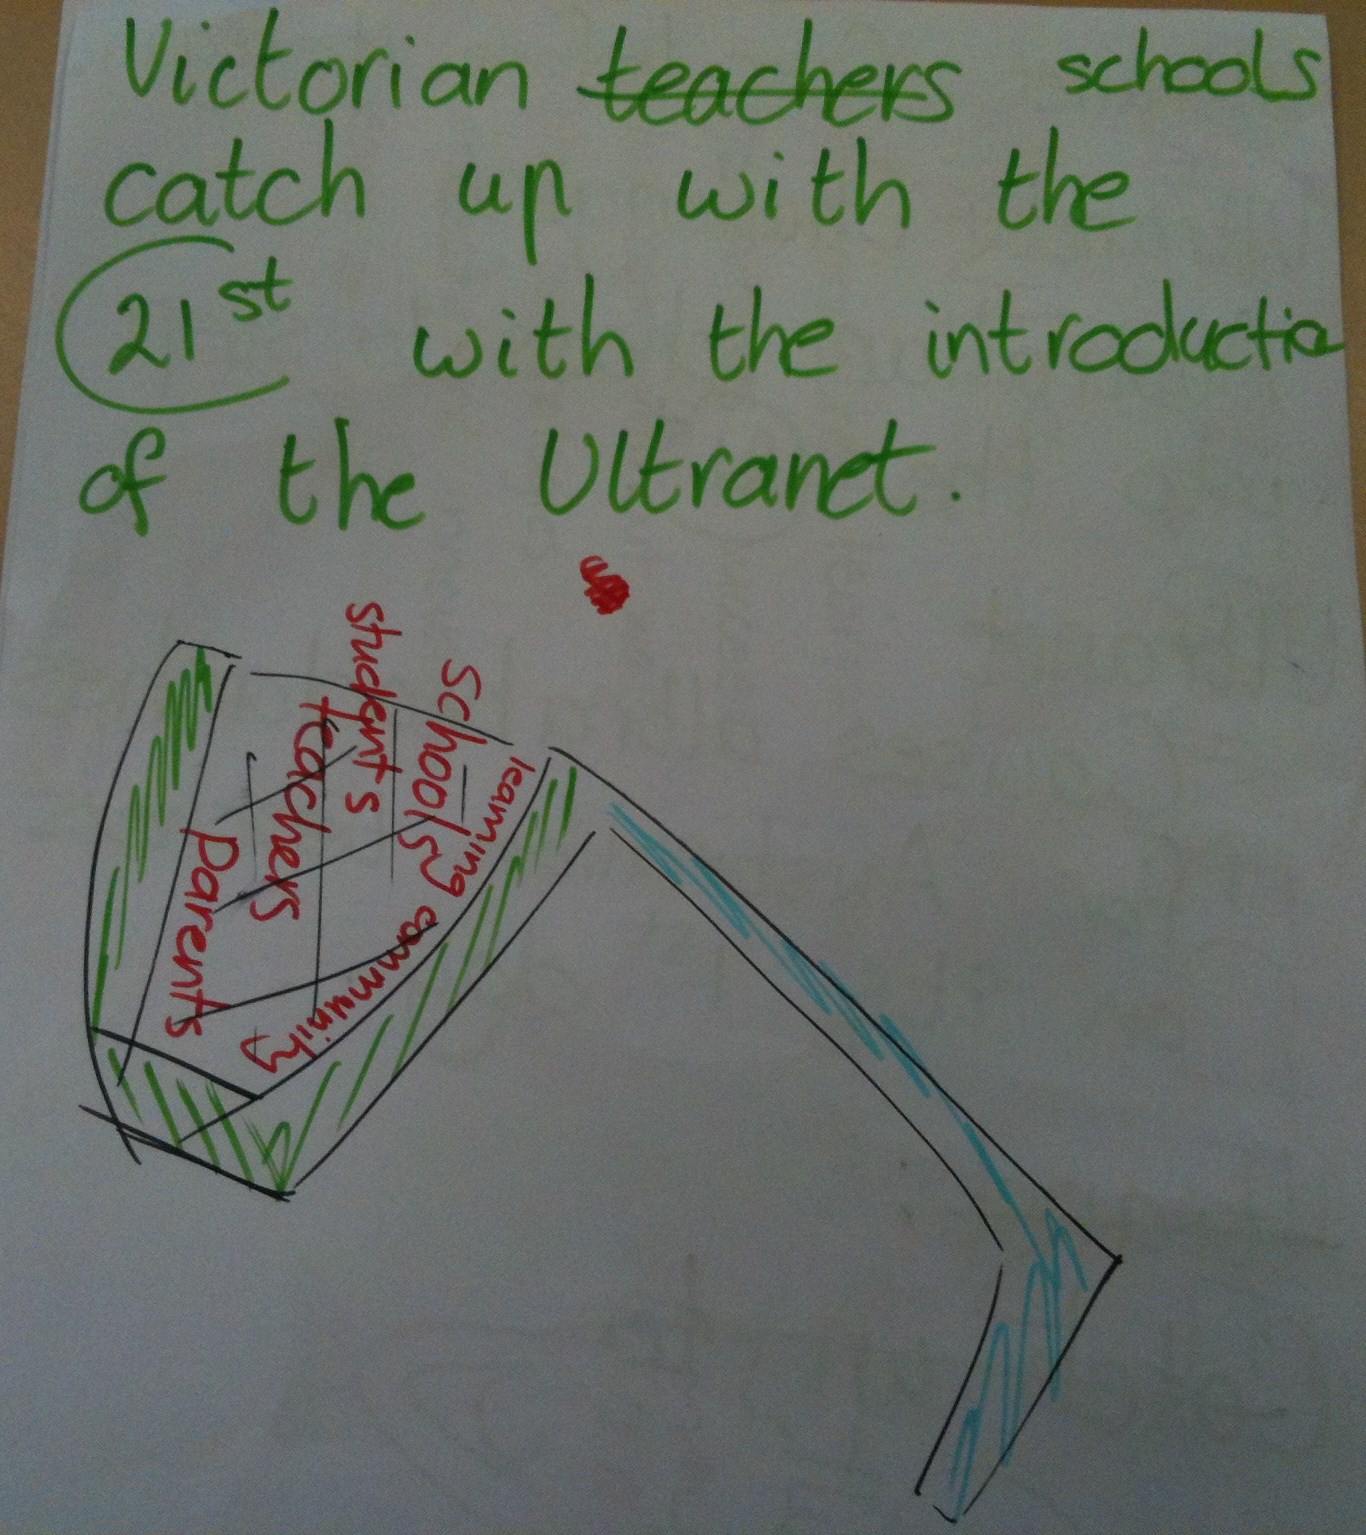 Victorian teachers schools
catch up with the
21st with the introductio
of the Ultranet.
students
schools
teachers
parents
learning community